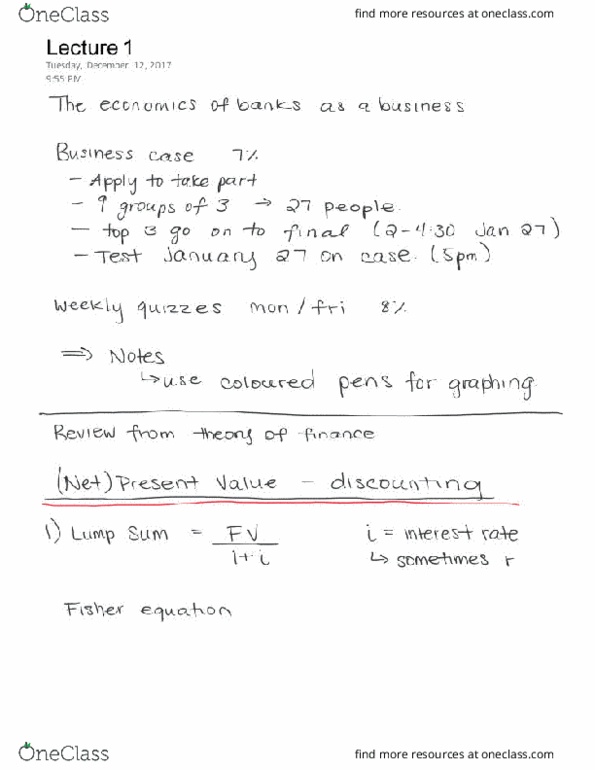 OneClass
find more resources at oneclass.com
Lecture 1
Tuesday, December 12, 2017
9:55 PM
The economics of banks as a business
Business case 7%
- Apply to take part
- 9 groups of 3 → 27 people.
- top 3 go on to final (2-4:30 Jan 27)
- Test January 27 on case. (5pm)
Weekly quizzes mon / fri 8%
⇒ Notes
↳ use coloured pens for graphing
Review from theory of finance
(Net) Present Value - discounting
1) Lump Sum = FV / 1+i i = interest rate
↳ sometimes r
Fisher equation
OneClass
find more resources at oneclass.com